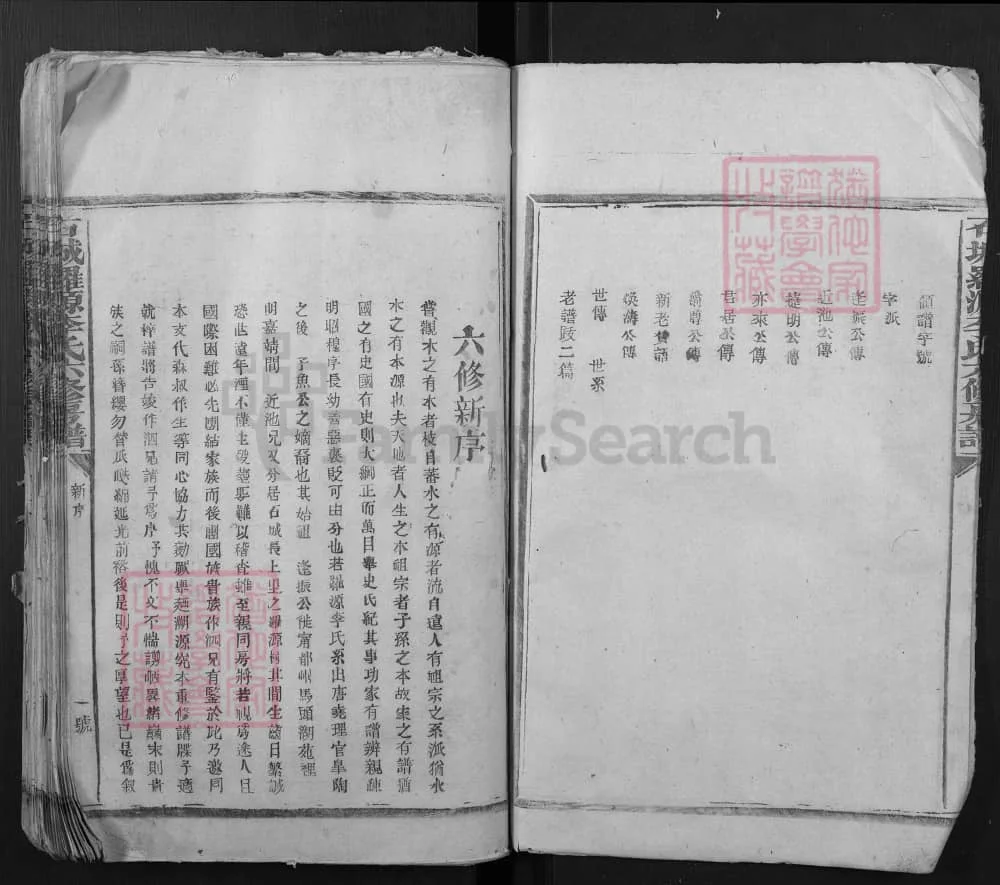 石城羅源李氏六修房譜
領譜字號
字派
逢振公傳
近池公傳
公傳
亦來公傳
君居公傳
公傳
煥濤公傳
新老譜語
世傳 世系
老譜跋二篇
六修新序
嘗觀木之有本者枝自蕃水之有源者流自遠人有祖宗之系派猶水
木之有本源也夫天地者人生之本祖宗者子孫之本故家之有譜猶
國之有史國有史則大綱正而萬目舉史氏紀其事功家有譜辨親疎
明昭穆序長幼善惡褒貶可由分也若羅源李氏系出唐堯理官皋陶
之後 予魚公之嫡裔也其始祖 逢振公徙甯都州馬頭湖苑裡
明嘉靖間 近池兄又分居石城長上里之羅源 其間生齒日繁誠
恐世遠年湮不僅生發 難以稽查雖至親同房將若視為途人且
國際困難必先團結家族而後團國族貴族作泗兄有鑒於此乃邀同
本支代森叔作生等同心協力共勷厥舉 溯源究本重修譜牒予適
就梓譜將告竣作泗兄請予為序予愧不文不惴謭陋畧緒巔末則貴
族之祠孫簪纓勿替瓜瓞綿延光前裕後是則予之厚望也已是為敘
石城羅源李氏六修房譜
新序
一號
FamilySearch